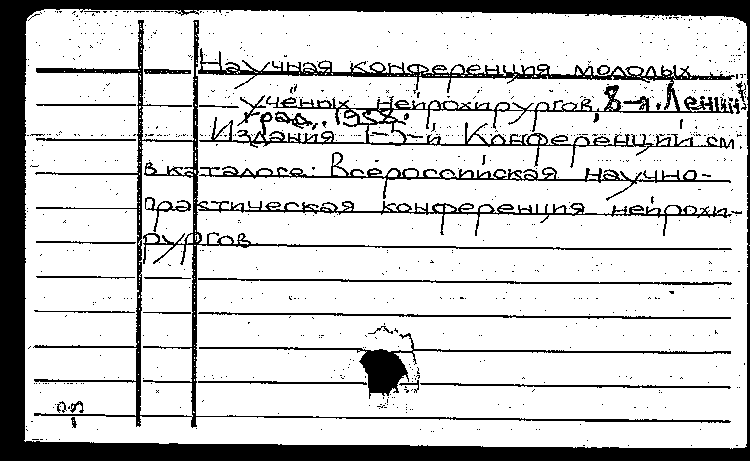 Научная конференция молодых
учёных нейрохирургов, 8-я. Ленин
град. 1958.
Издания 1-5-й Конференций см.
в каталоге: Всероссийская научно-
практическая конференция нейрохи-
рургов